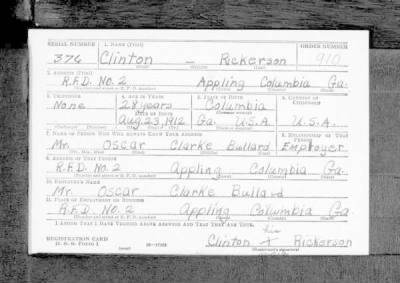 SERIAL NUMBER 1. NAME (Print) ORDER NUMBER
376 Clinton — Rickerson 910
2. ADDRESS (Print)
R.F.D. No. 2 Appling Columbia Ga.
3. TELEPHONE 4. AGE IN YEARS 5. PLACE OF BIRTH 6. COUNTRY OF CITIZENSHIP
None 28 years Columbia
DATE OF BIRTH
Aug 23, 1912 Ga. U.S.A. U.S.A.
7. NAME OF PERSON WHO WILL ALWAYS KNOW YOUR ADDRESS 8. RELATIONSHIP OF THAT PERSON
Mr. Oscar Clarke Bullard Employer
9. ADDRESS OF THAT PERSON
R.F.D. No. 2 Appling Columbia Ga.
10. EMPLOYER'S NAME
Mr. Oscar Clarke Bullard
11. PLACE OF EMPLOYMENT OR BUSINESS
R.F.D. No. 2 Appling Columbia Ga.
I AFFIRM THAT I HAVE VERIFIED ABOVE ANSWERS AND THAT THEY ARE TRUE.
his
REGISTRATION CARD Clinton X Rickerson
D. S. S. FORM 1 (Registrant's signature)